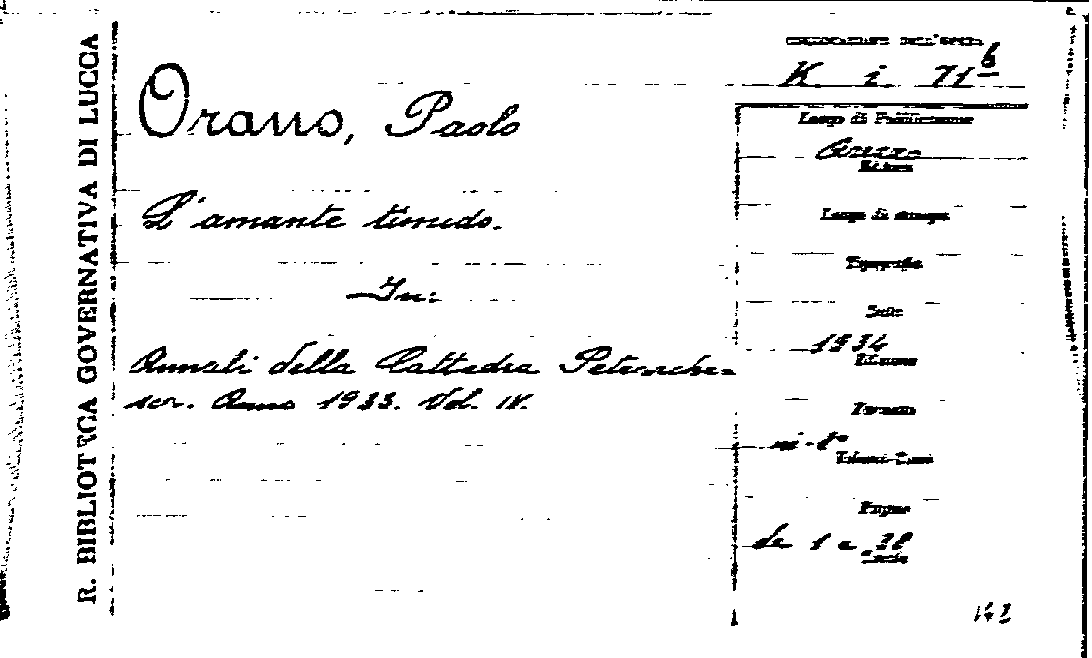 R. BIBLIOTECA GOVERNATIVA DI LUCCA
COLLOCAZIONE DELL'OPERA
K. i. 71 b
Orano, Paolo
L'amante timido.
In:
Annali della Cattedra Petrarche-
sca. Anno 1933. Vol. IV.
Luogo di Pubblicazione
Arezzo
Editore
Luogo di stampa
Tipografia
Data
1934
Edizione
Formato
in-8°
Volumi-Tomi
Pagine
da 1 a 28